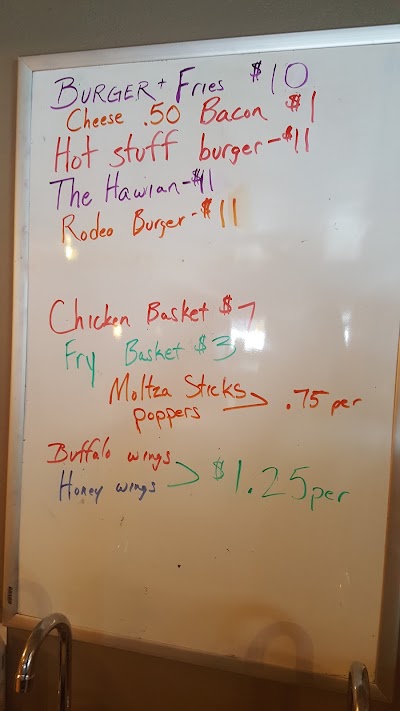 BURGER + Fries $10
Cheese .50 Bacon $1
Hot stuff burger - $11
The Hawian - $11
Rodeo Burger - $11
Chicken Basket $7
Fry Basket $3
Moltza Sticks
poppers > .75 per
Buffalo wings
Honey wings > $1.25 per